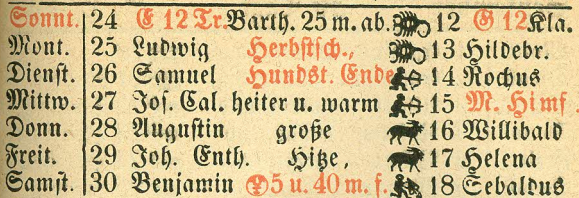 Sonnt. 24 E 12 Tr. Barth. 25 m. ab. 12 G 12 Kla.
Mont. 25 Ludwig Herbſtſch., 13 Hildebr.
Dienſt. 26 Samuel Hundst. Ende 14 Rochus
Mittw. 27 Joſ. Cal. heiter u. warm 15 M. Himf
Donn. 28 Auguſtin große 16 Willibald
Freit. 29 Joh. Enth. Hitze, 17 Helena
Samſt. 30 Benjamin 5 u. 40 m. f. 18 Sebaldus